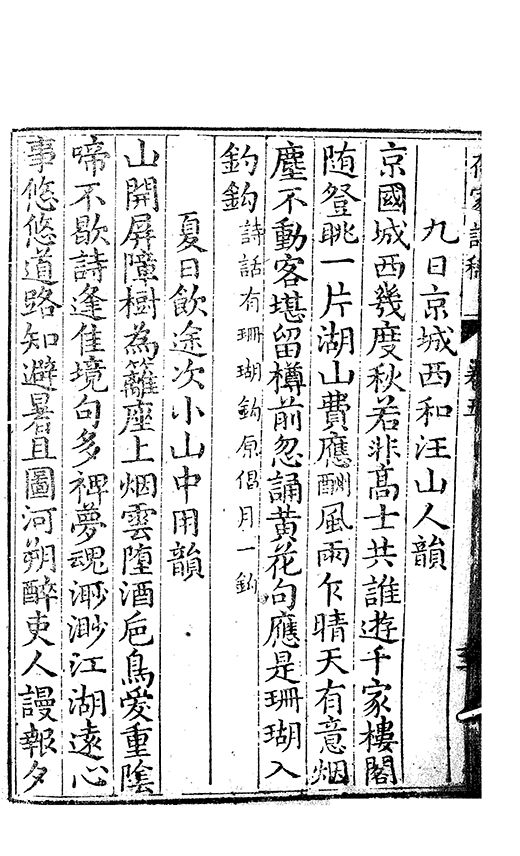 九日京城西和汪山人韻
京國城西幾度秋若非高士共誰遊千家樓閣
随登眺一片湖山費應酬風雨乍晴天有意烟
塵不動客堪留樽前忽誦黄花句應是珊瑚入
釣鈎詩話有珊瑚鈎原倡月一鈎
夏日飲途次小山中用韻
山開屏障樹為籬座上烟雲墮酒巵鳥愛重陰
啼不歇詩逢佳境句多裨夢魂渺渺江湖遠心
事悠悠道路知避暑且圖河朔醉吏人謾報夕